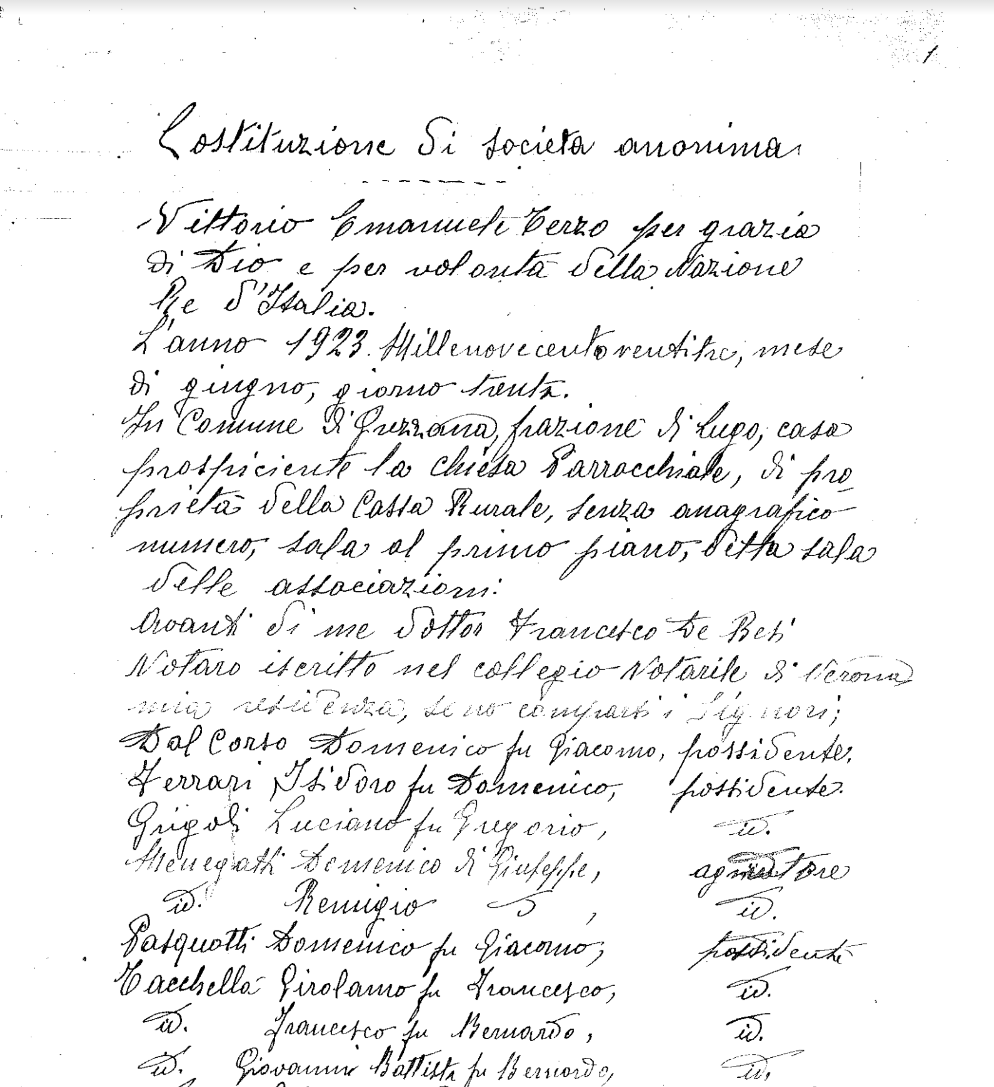 1
Costituzione di società anonima
Vittorio Emanuele Terzo per grazia
di Dio e per volontà della Nazione
Re d'Italia.
L'anno 1923. Millenovecentoventitre, mese
di giugno, giorno trenta.
In Comune di Grezzana, frazione di Lugo, casa
prospiciente la chiesa Parrocchiale, di pro
prietà della Cassa Rurale, senza anagrafico
numero, sala al primo piano, detta sala
delle associazioni:
Avanti di me dottor Francesco De Besi
Notaro iscritto nel collegio Notarile di Verona
mia residenza, sono comparsi i Signori;
Dal Corso Domenico fu Giacomo, possidente.
Ferrari Isidoro fu Domenico, possidente.
Grigoli Luciano fu Gregorio, id.
Menegatti Domenico di Giuseppe, agricoltore
id. Remigio , id.
Pasquotti Domenico fu Giacomo, possidente
Tacchella Girolamo fu Francesco, id.
id. Francesco fu Bernardo, id.
id. Giovanni Battista fu Bernardo, id.